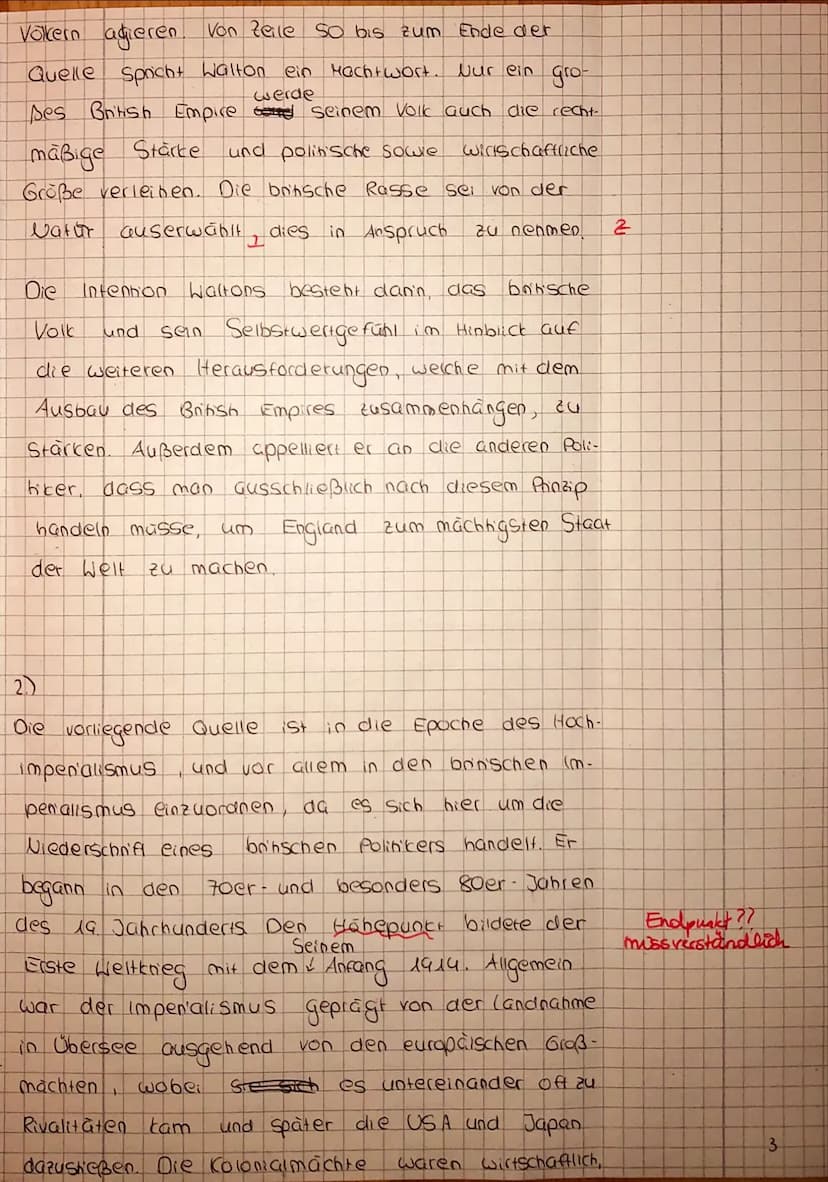 Völkern agieren. Von Zeile 50 bis zum Ende der
Quelle spricht Walton ein Machtwort. Nur ein gro-
werde
ßes British Empire seinem Volk auch die recht-
mäßige Stärke und politische sowie wirtschaftliche
Größe verleihen. Die britische Rasse sei von der
Natur auserwählt, dies in Anspruch zu nehmen. 2
Die Intention Waltons besteht darin, das britische
Volk und sein Selbstwertgefühl im Hinblick auf
die weiteren Herausforderungen, welche mit dem
Ausbau des British Empires zusammenhängen, zu
stärken. Außerdem appelliert er an die anderen Poli-
tiker, dass man ausschließlich nach diesem Prinzip
handeln müsse, um England zum mächtigsten Staat
der Welt zu machen.
2.)
Die vorliegende Quelle ist in die Epoche des Hoch-
imperialismus, und vor allem in den britischen Im-
perialismus einzuordnen, da es sich hier um die
Niederschrift eines britischen Politikers handelt. Er
begann in den 70er- und besonders 80er-Jahren
des 19. Jahrhunderts. Den Höhepunkt bildete der Endpunkt??
missverständlich
seinem
Erste Weltkrieg mit dem Anfang 1914. Allgemein
war der Imperialismus geprägt von der Landnahme
in Übersee ausgehend von den europäischen Groß-
mächten, wobei es untereinander oft zu
Rivalitäten kam und später die USA und Japan
dazustießen. Die Kolonialmächte waren wirtschaftlich,
3